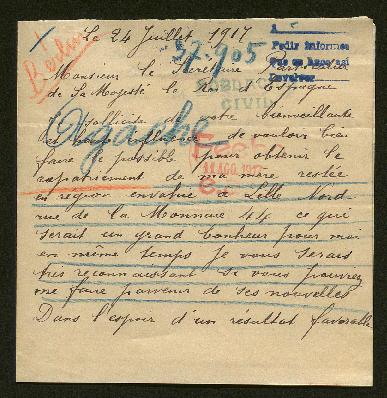 Le 24 Juillet 1917
Berlin
57.905
Pedir Informes
Monsieur le Secrétaire Particulier
de Sa Majesté le Roi d'Espagne
CIVIL
Je sollicite de votre bienveillante
et haute influence de vouloir bien
Agache
faire le possible pour obtenir le
rapatriement de ma mère restée
en région envahie à Lille Nord
rue de la Monnaie 44 ce qui
serait un grand bonheur pour moi
en même temps je vous serais
très reconnaissant si vous pouvez
me faire parvenir de ses nouvelles
Dans l'espoir d'un résultat favorable